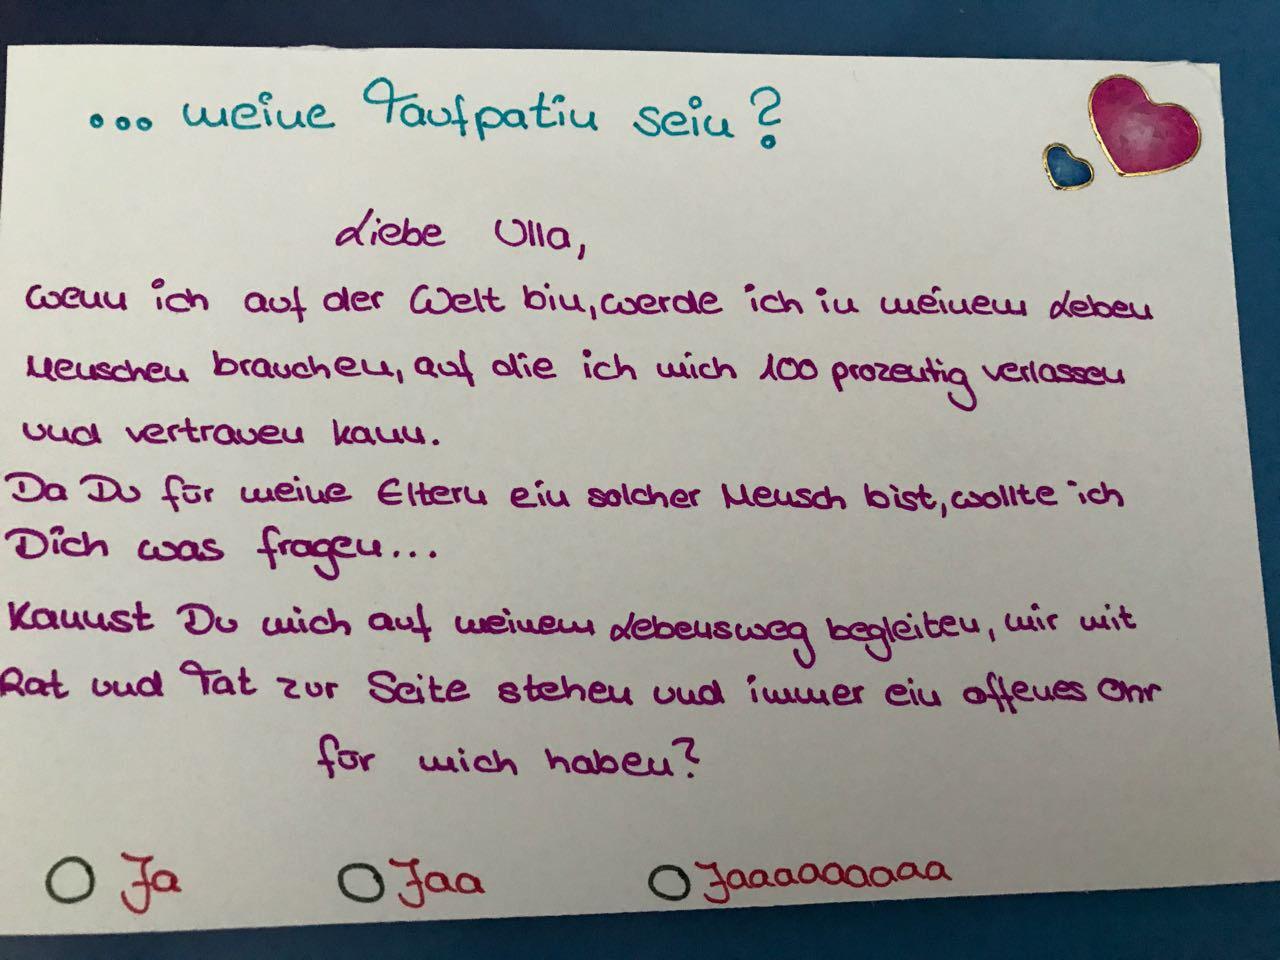 ... meine Taufpatin sein?
Liebe Ulla,
wenn ich auf der Welt bin, werde ich in meinem Leben
Menschen brauchen, auf die ich mich 100 prozentig verlassen
und vertrauen kann.
Da Du für meine Eltern ein solcher Mensch bist, wollte ich
Dich was fragen...
Kannst Du mich auf meinem Lebensweg begleiten, mir mit
Rat und Tat zur Seite stehen und immer ein offenes Ohr
für mich haben?
O Ja O Jaa O Jaaaaaaaaa